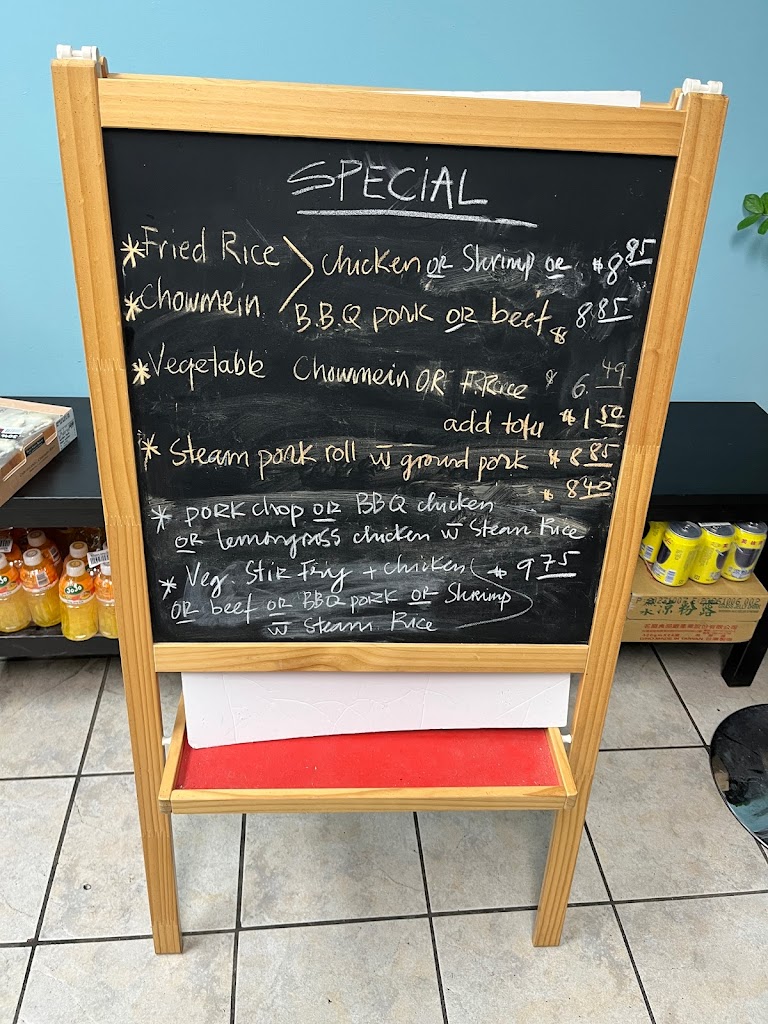 SPECIAL
* Fried Rice > chicken OR Shrimp OR $8.85
* Chowmein B.B.Q pork OR beef $8.85
* Vegetable Chowmein OR F.Rice $6.49
add tofu $1.50
* Steam pork roll w ground pork $8.85
$8.40
* PORK chop OR BBQ chicken
OR lemongrass chicken w Steam Rice
* Veg. Stir Fry + chicken $9.75
OR beef OR BBQ pork OR Shrimp
w Steam Rice